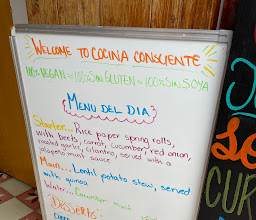 WELCOME TO COCINA CONSCIENTE
100% VEGAN = 100% SIN GLUTEN = 100% SIN SOYA
MENU DEL DIA
Starter... Rice paper spring rolls,
with beets, carrot, cucumber, red onion,
roasted garlic, cilantro, served with a
jalapeño mint sauce
Main... Lentil potato stew, served
with quinoa
Water... Cucumber mint
DESSERTS